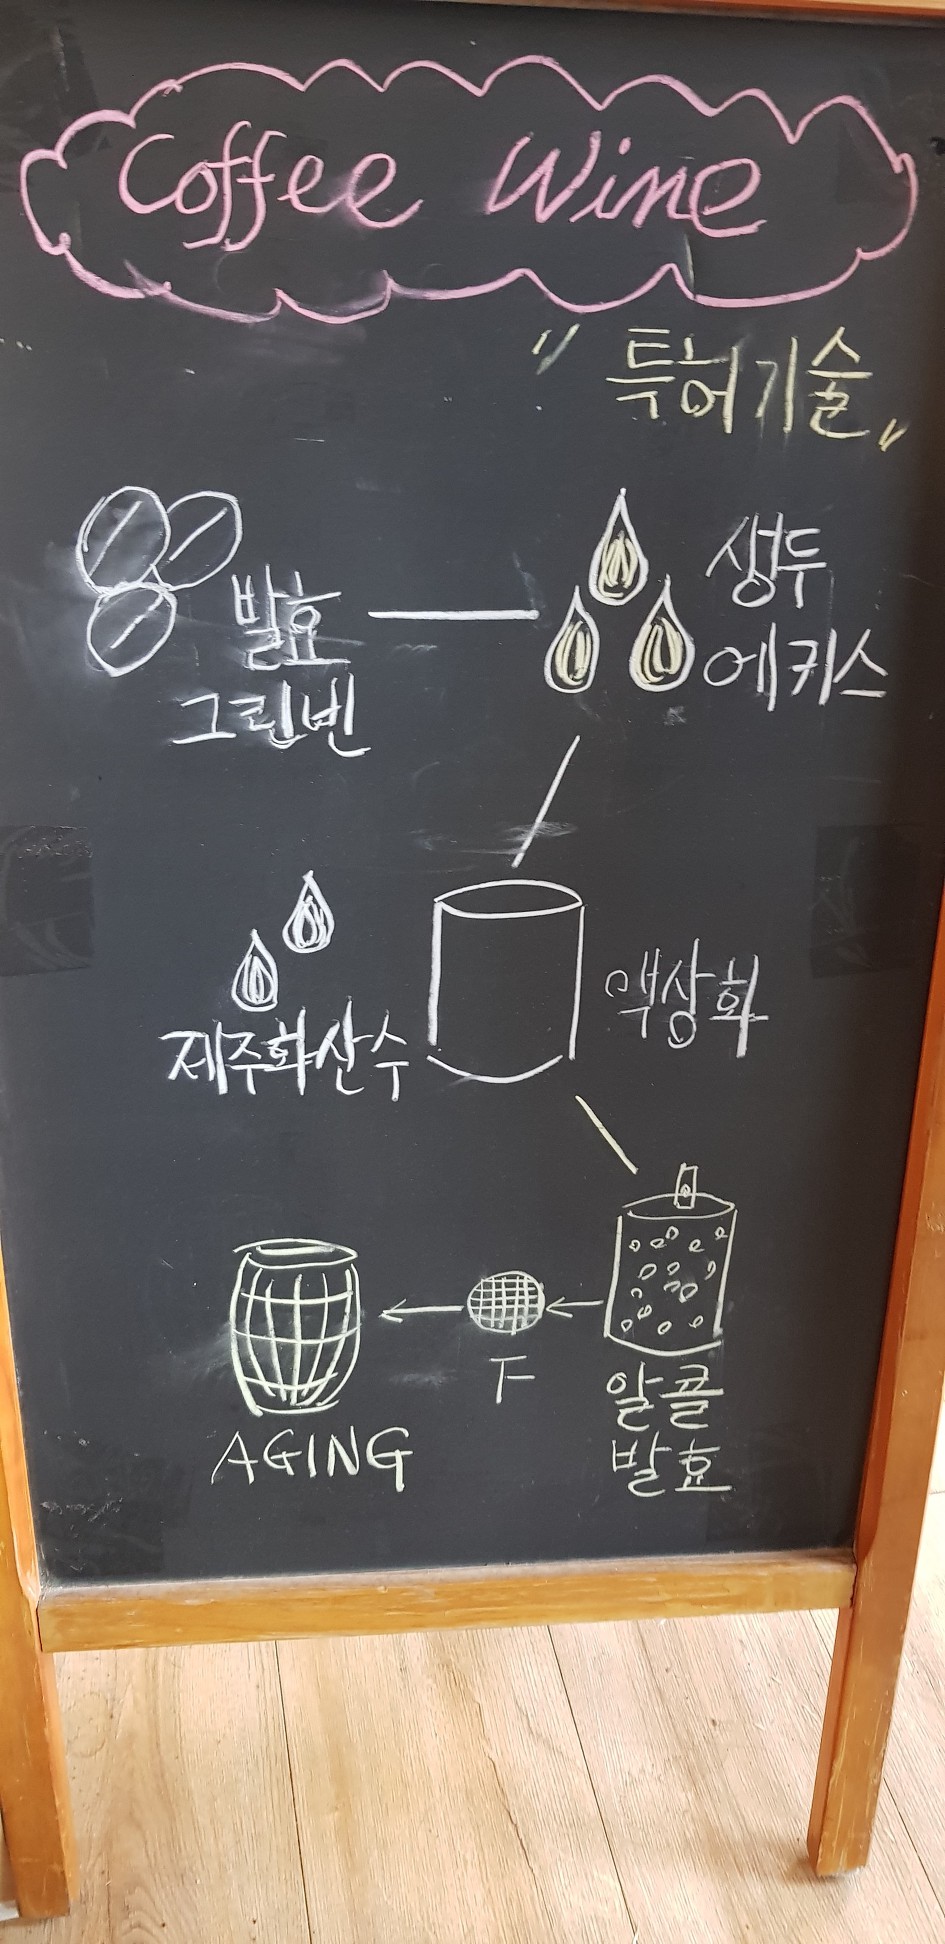 Coffee Wine
"특허기술"
발효
그린빈
생두
에키스
제주화산수
액상화
F
알콜
발효
AGING